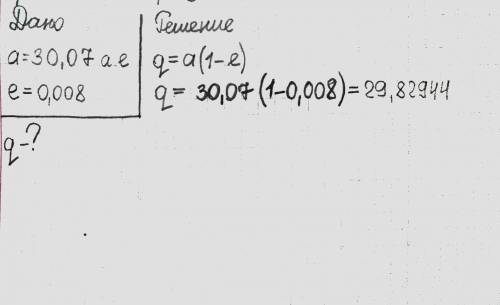 Дано
a=30,07 а.е
e=0,008
q-?
Решение
q=a(1-e)
q= 30,07(1-0,008)=29,82944